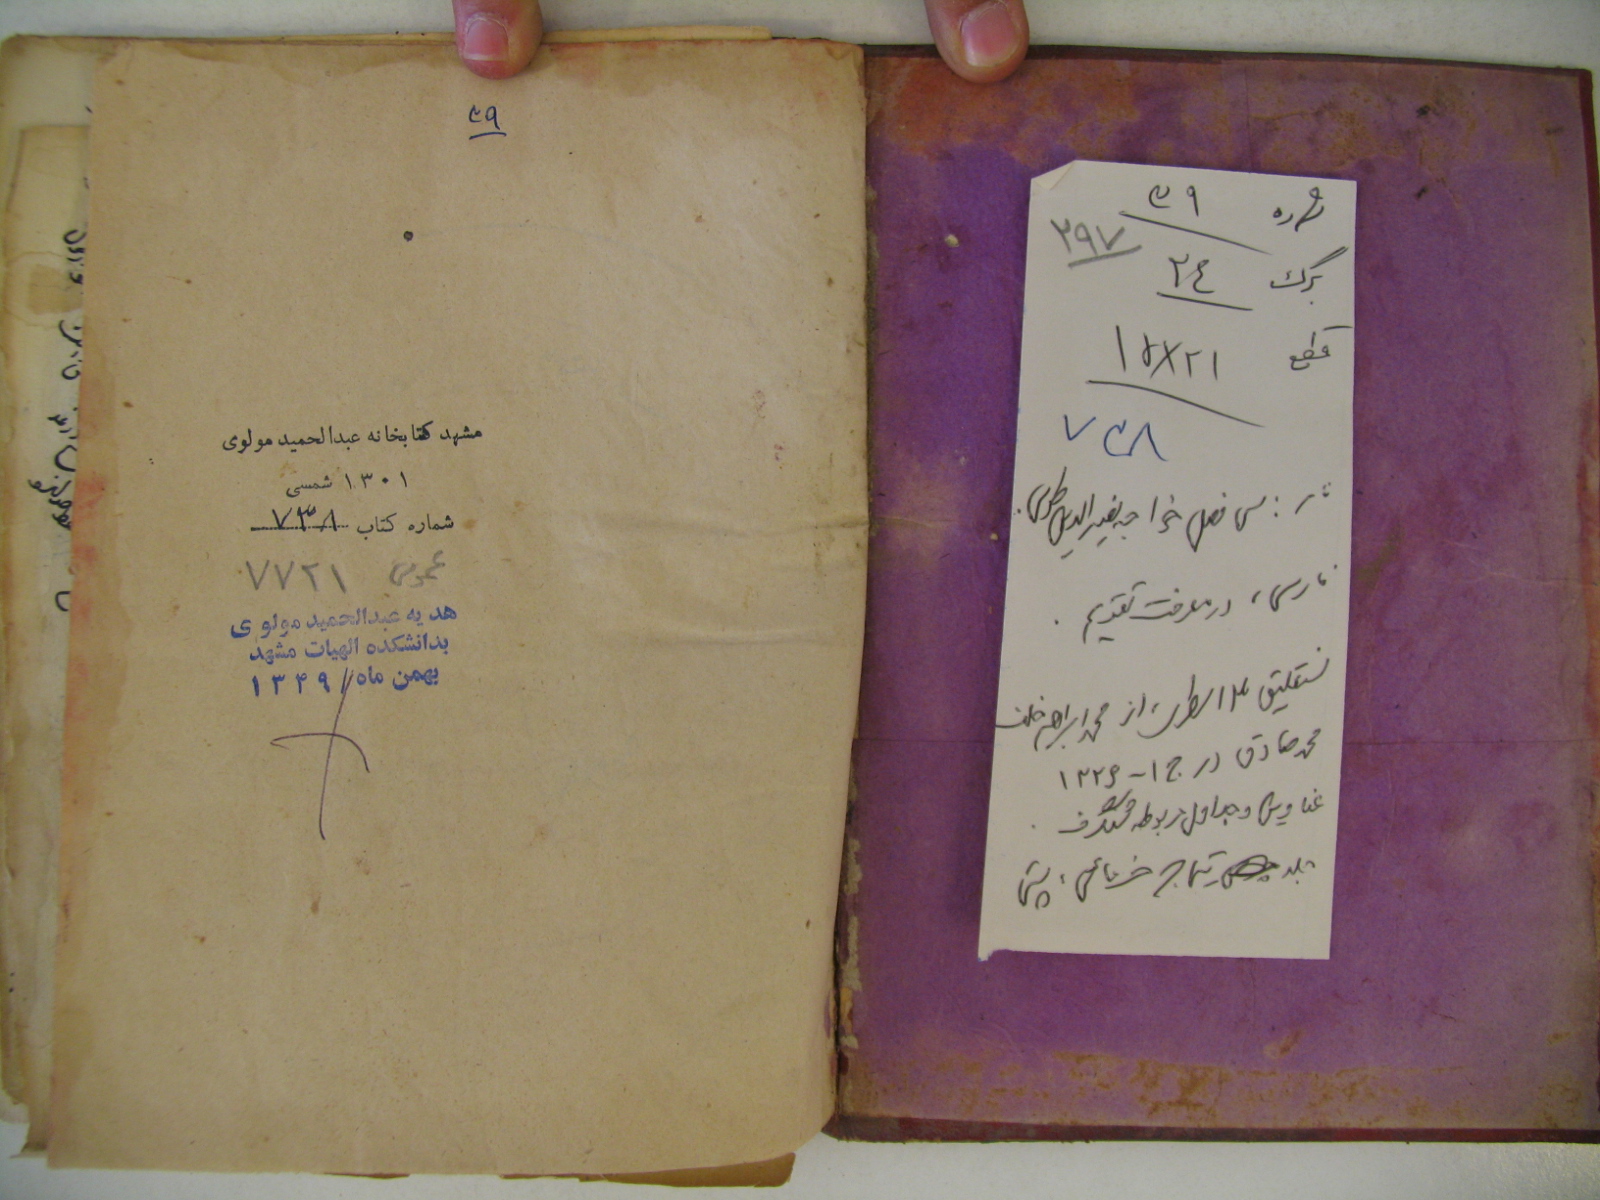 ۳۹
مشهد کتابخانه عبدالحمید مولوی
۱۳۰۱ شمسی
شماره کتاب ۷۳۸
عمومی ۷۷۲۱
هدیه عبدالحمید مولوی
بدانشکده الهیات مشهد
بهمن ماه ۱۳۴۹
شماره ۳۹
۲۹۷
برگ ۲۴
قطع ۱۵×۲۱
۷۳۸
سی فصل خواجه نصیرالدین طوسی.
فارسی، در معرفت تقویم.
نستعلیق ۱۳ سطری، از محمد ابراهیم خلف
محمد صادق در ج ۱-۱۲۲۶
عناوین و جداول مربوطه شنگرف.
جلد تیماج خرمائی،